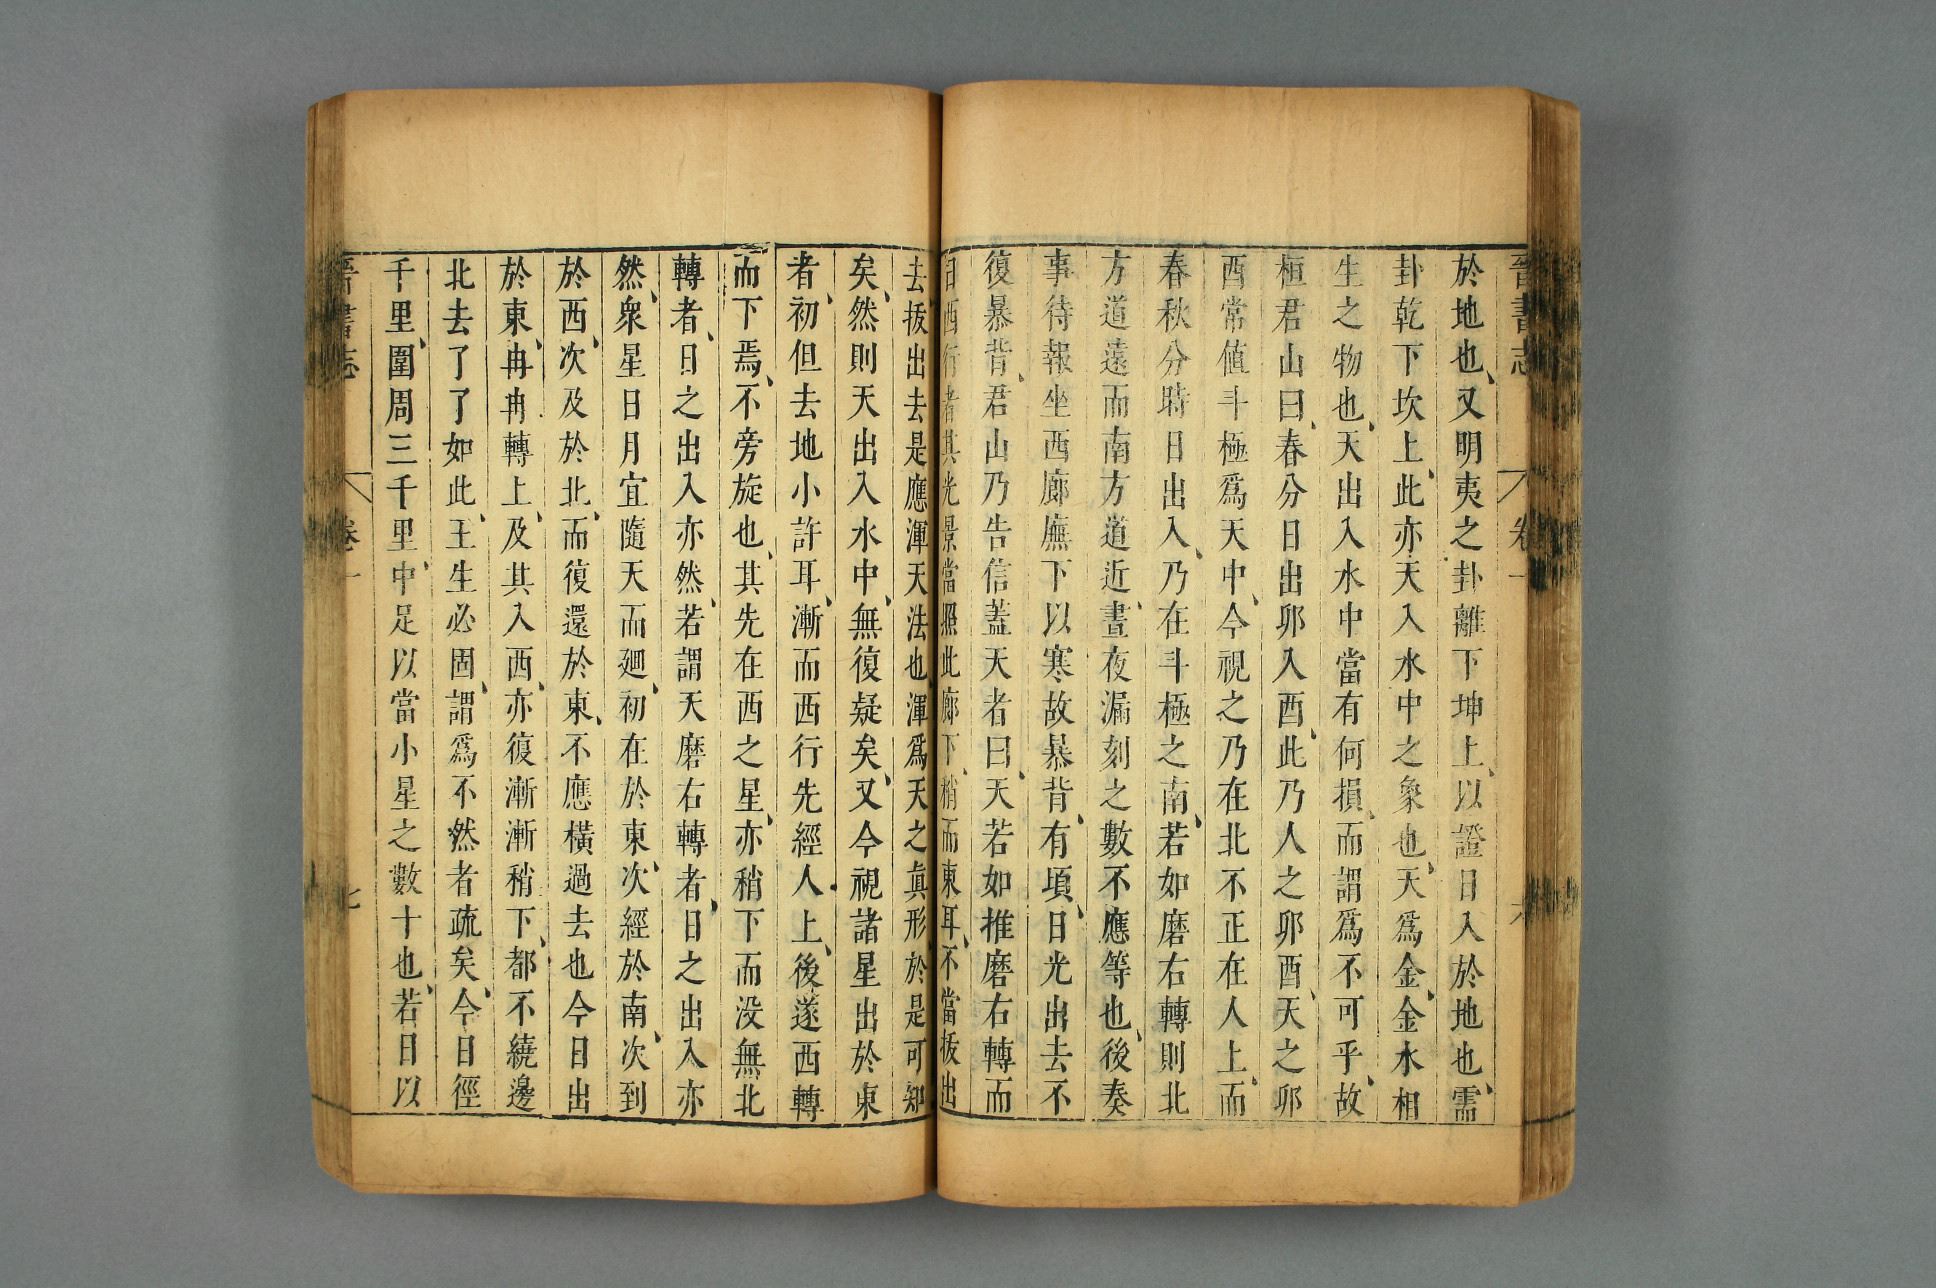 晉書志 卷十 六
於地也又明夷之卦離下坤上以證日入於地也需
卦乾下坎上此亦天入水中之象也天爲金金水相
生之物也天出入水中當有何損而謂爲不可乎故
桓君山曰春分日出卯入酉此乃人之卯酉天之卯
酉常値斗極爲天中今視之乃在北不正在人上而
春秋分時日出入乃在斗極之南若如磨右轉則北
方道遠而南方道近晝夜漏刻之數不應等也後奏
事待報坐西廊廡下以寒故暴背有頃日光出去不
復暴背君山乃告信蓋天者曰天若如推磨右轉而
日西行者其光景當照此廊下稍而東耳不當拔出
去拔出去是應渾天法也渾爲天之眞形於是可知
矣然則天出入水中無復疑矣又今視諸星出於東
者初但去地小許耳漸而西行先經人上後遂西轉
而下焉不旁旋也其先在西之星亦稍下而没無北
轉者日之出入亦然若謂天磨右轉者日之出入亦
然衆星日月宜隨天而廻初在於東次經於南次到
於西次及於北而復還於東不應橫過去也今日出
於東冉冉轉上及其入西亦復漸漸稍下都不繞邊
北去了了如此王生必固謂爲不然者疏矣今日徑
千里圍周三千里中足以當小星之數十也若日以
晉書志 卷十 七